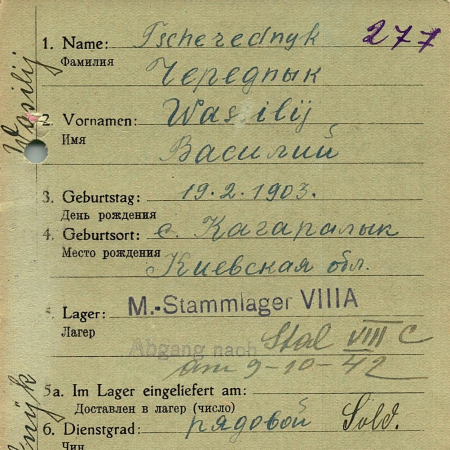 1. Name: Tscherednyk 277
Фамилия Чередпык
2. Vornamen: Wassilij
Имя Василий
3. Geburtstag: 19.2.1903.
День рождения
4. Geburtsort: с. Кагаралык
Место рождения Киевская обл.
5. Lager: M.-Stammlager VIIIA
Лагерь
Abgang nach Stal VIII C
am 9-10-42
5a. Im Lager eingeliefert am:
Доставлен в лагерь (число)
6. Dienstgrad: рядовой Sold.
Чин
Wasilij